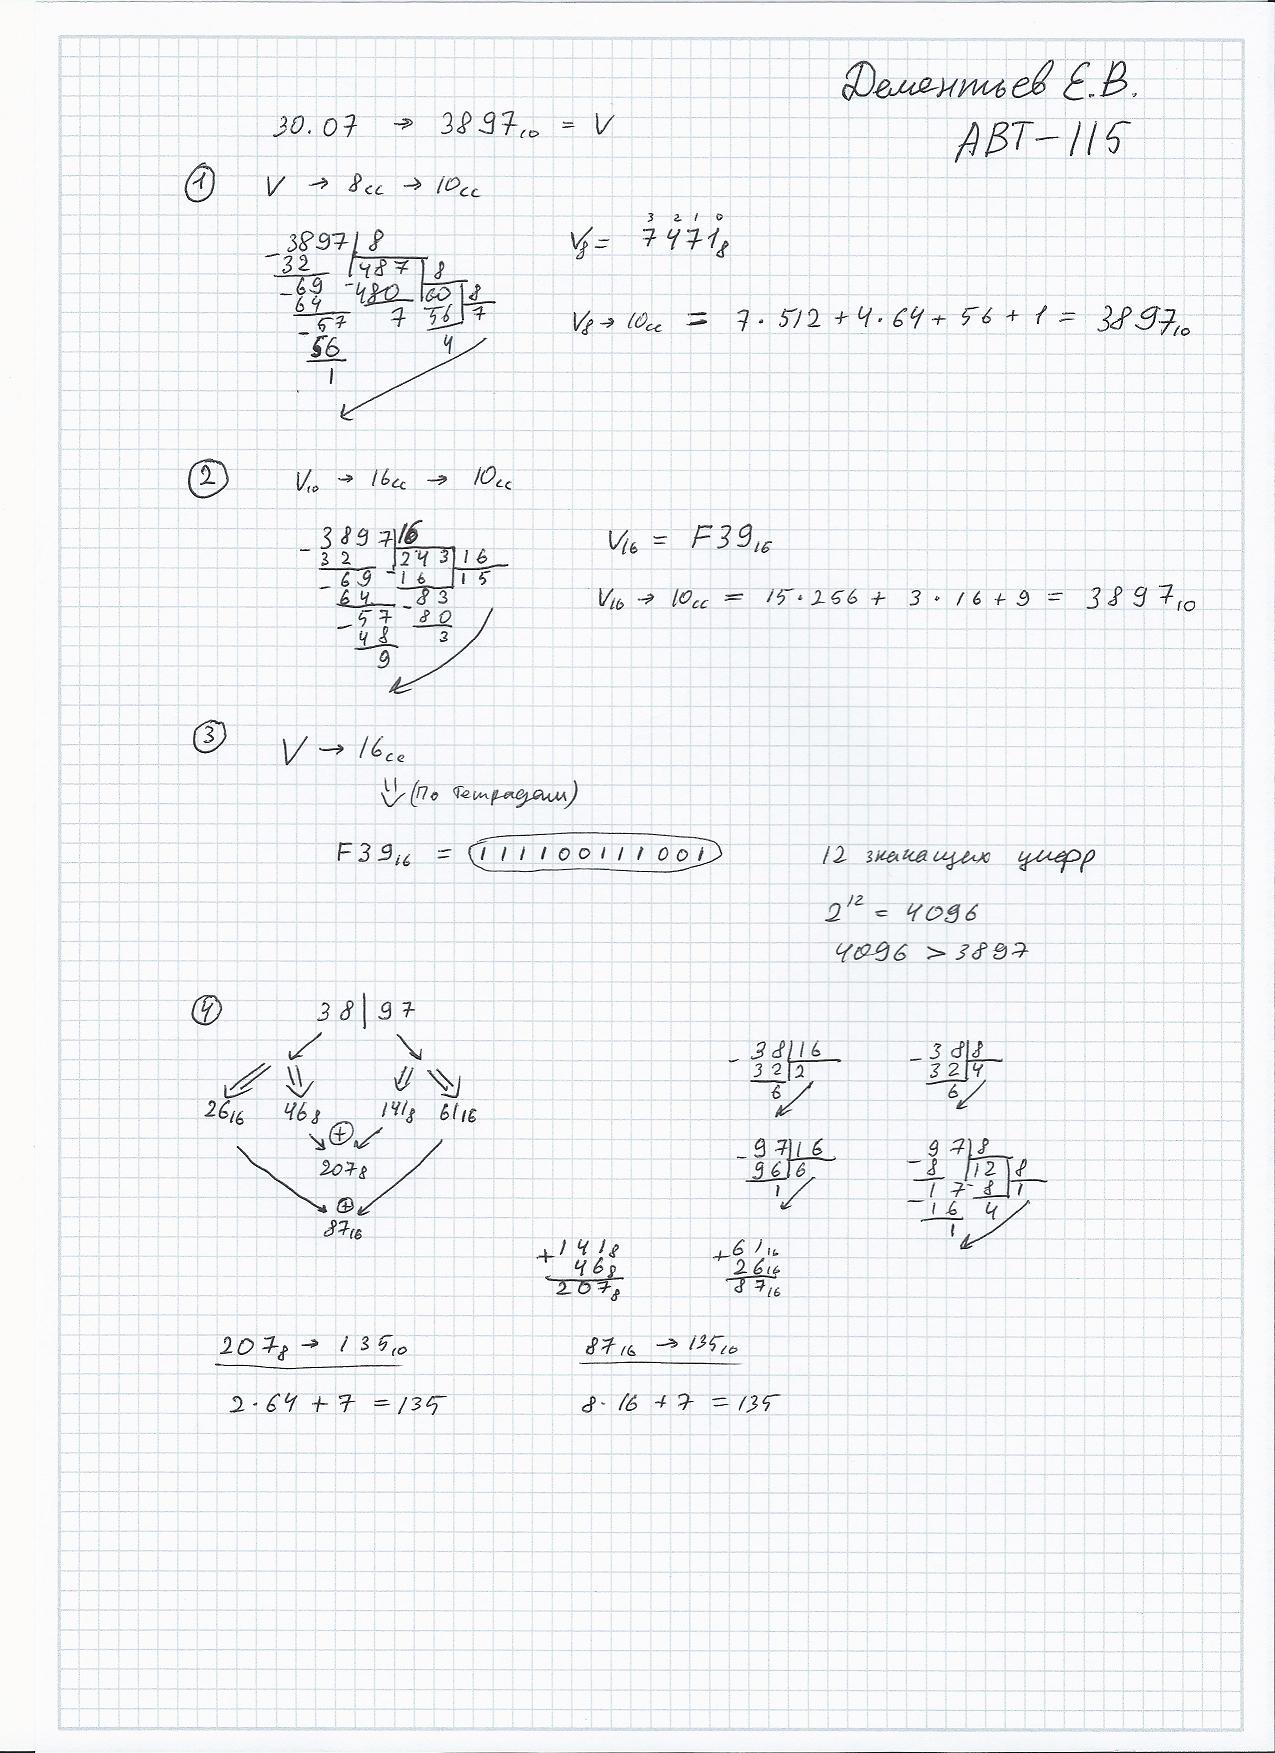 Дементьев Е.В.
АВТ-115
30.07 → 3897₁₀ = V
① V → 8сс → 10сс
3 2 1 0
V₈ = 7471₈
-3897 | 8
32 | 487 | 8
-69 -480 | 60 | 8
64 7 56 | 7
-57 4
56
1
V₈ → 10сс = 7·512 + 4·64 + 56 + 1 = 3897₁₀
② V₁₀ → 16сс → 10сс
-3897 | 16
32 | 243 | 16
-69 -16 | 15
64 -83
-57 80
48 3
9
V₁₆ = F39₁₆
V₁₆ → 10сс = 15·256 + 3·16 + 9 = 3897₁₀
③ V → 16сс
⇓ (По тетрадам)
F39₁₆ = 111100111001
12 значащих цифр
2¹² = 4096
4096 > 3897
④ 38 | 97
26₁₆ 46₈ 141₈ 61₁₆
⊕
207₈
⊕
87₁₆
-38 | 16
32 | 2
6
-38 | 8
32 | 4
6
-97 | 16
96 | 6
1
-97 | 8
8 | 12 | 8
-17 -8 | 1
16 4
1
+141₈
46₈
207₈
+61₁₆
26₁₆
87₁₆
207₈ → 135₁₀
2·64 + 7 = 135
87₁₆ → 135₁₀
8·16 + 7 = 135